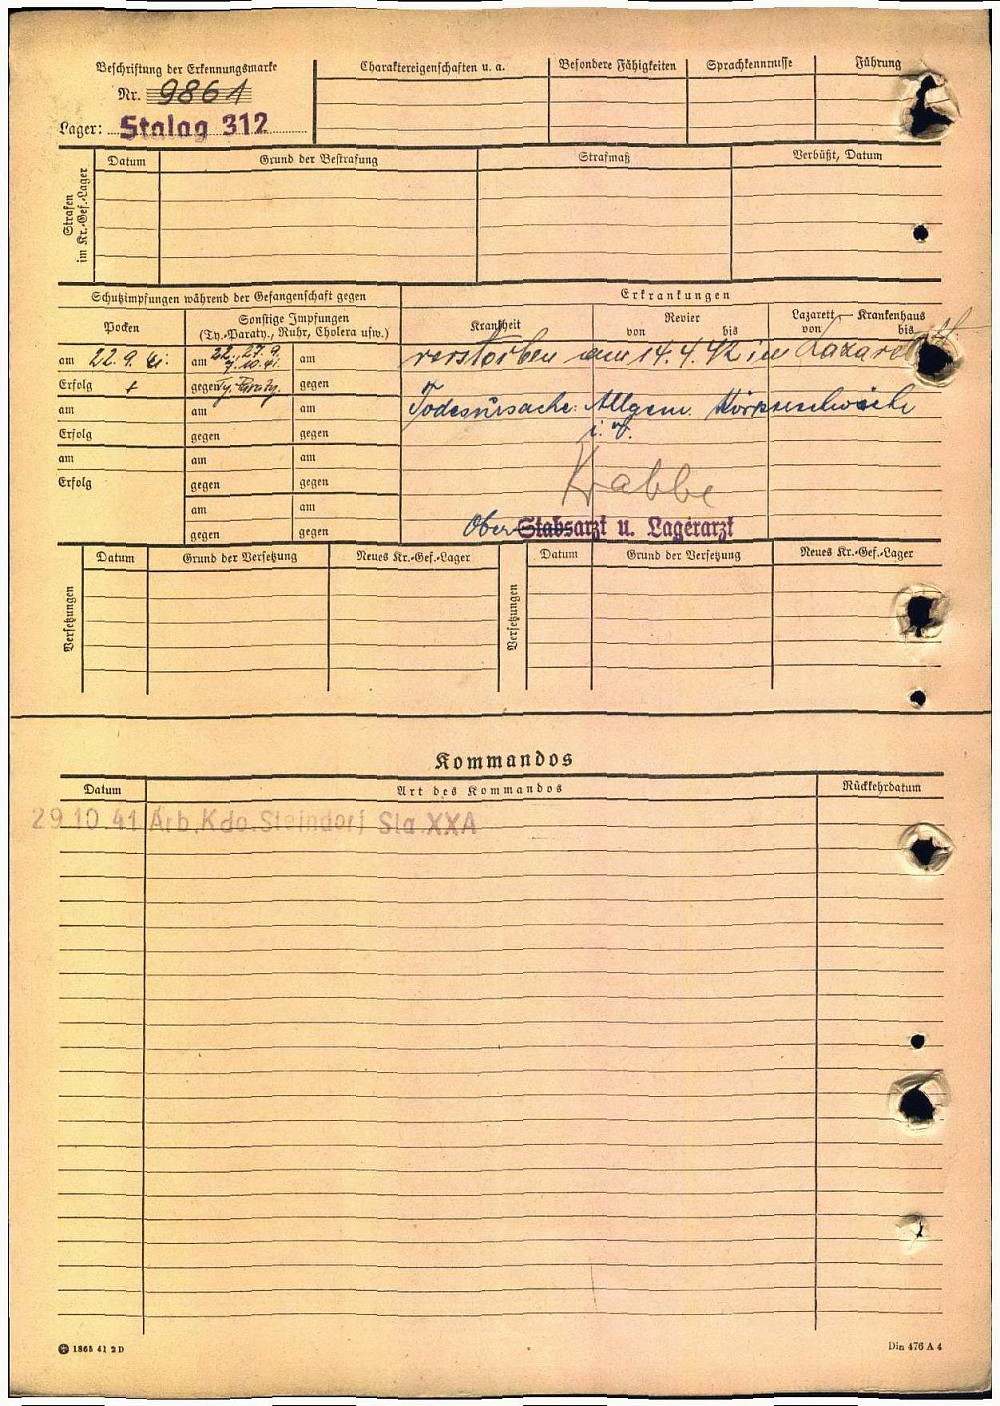 Beschriftung der Erkennungsmarke
Nr. 9861
Lager: Stalag 312
Charaktereigenschaften u. a.
Besondere Fähigkeiten
Sprachkenntnisse
Führung
Strafen im Kr.-Gef.-Lager
Datum
Grund der Bestrafung
Strafmaß
Verbüßt, Datum
Schutzimpfungen während der Gefangenschaft gegen
Erkrankungen
Pocken
Sonstige Impfungen
(Ty.-Paraty., Ruhr, Cholera usw.)
Krankheit
Revier
von bis
Lazarett — Krankenhaus
von bis
am 22.9.41. am 22., 27.9. 7.10.41. am
verstorben am 14.4.42 im Lazarett
Erfolg + gegen Ty. Paraty. gegen
am am am
Todesursache: Allgem. Körperschwäche
Erfolg gegen gegen
i. V.
am am am
Erfolg gegen gegen
Krabbe
am am
gegen gegen
Ober Stabsarzt u. Lagerarzt
Versetzungen
Datum
Grund der Versetzung
Neues Kr.-Gef.-Lager
Versetzungen
Datum
Grund der Versetzung
Neues Kr.-Gef.-Lager
Kommandos
Datum
Art des Kommandos
Rückkehrdatum
29.10.41 Arb.Kdo.Steindorf Sta.XXA
1865 41 2 D
Din 476 A 4